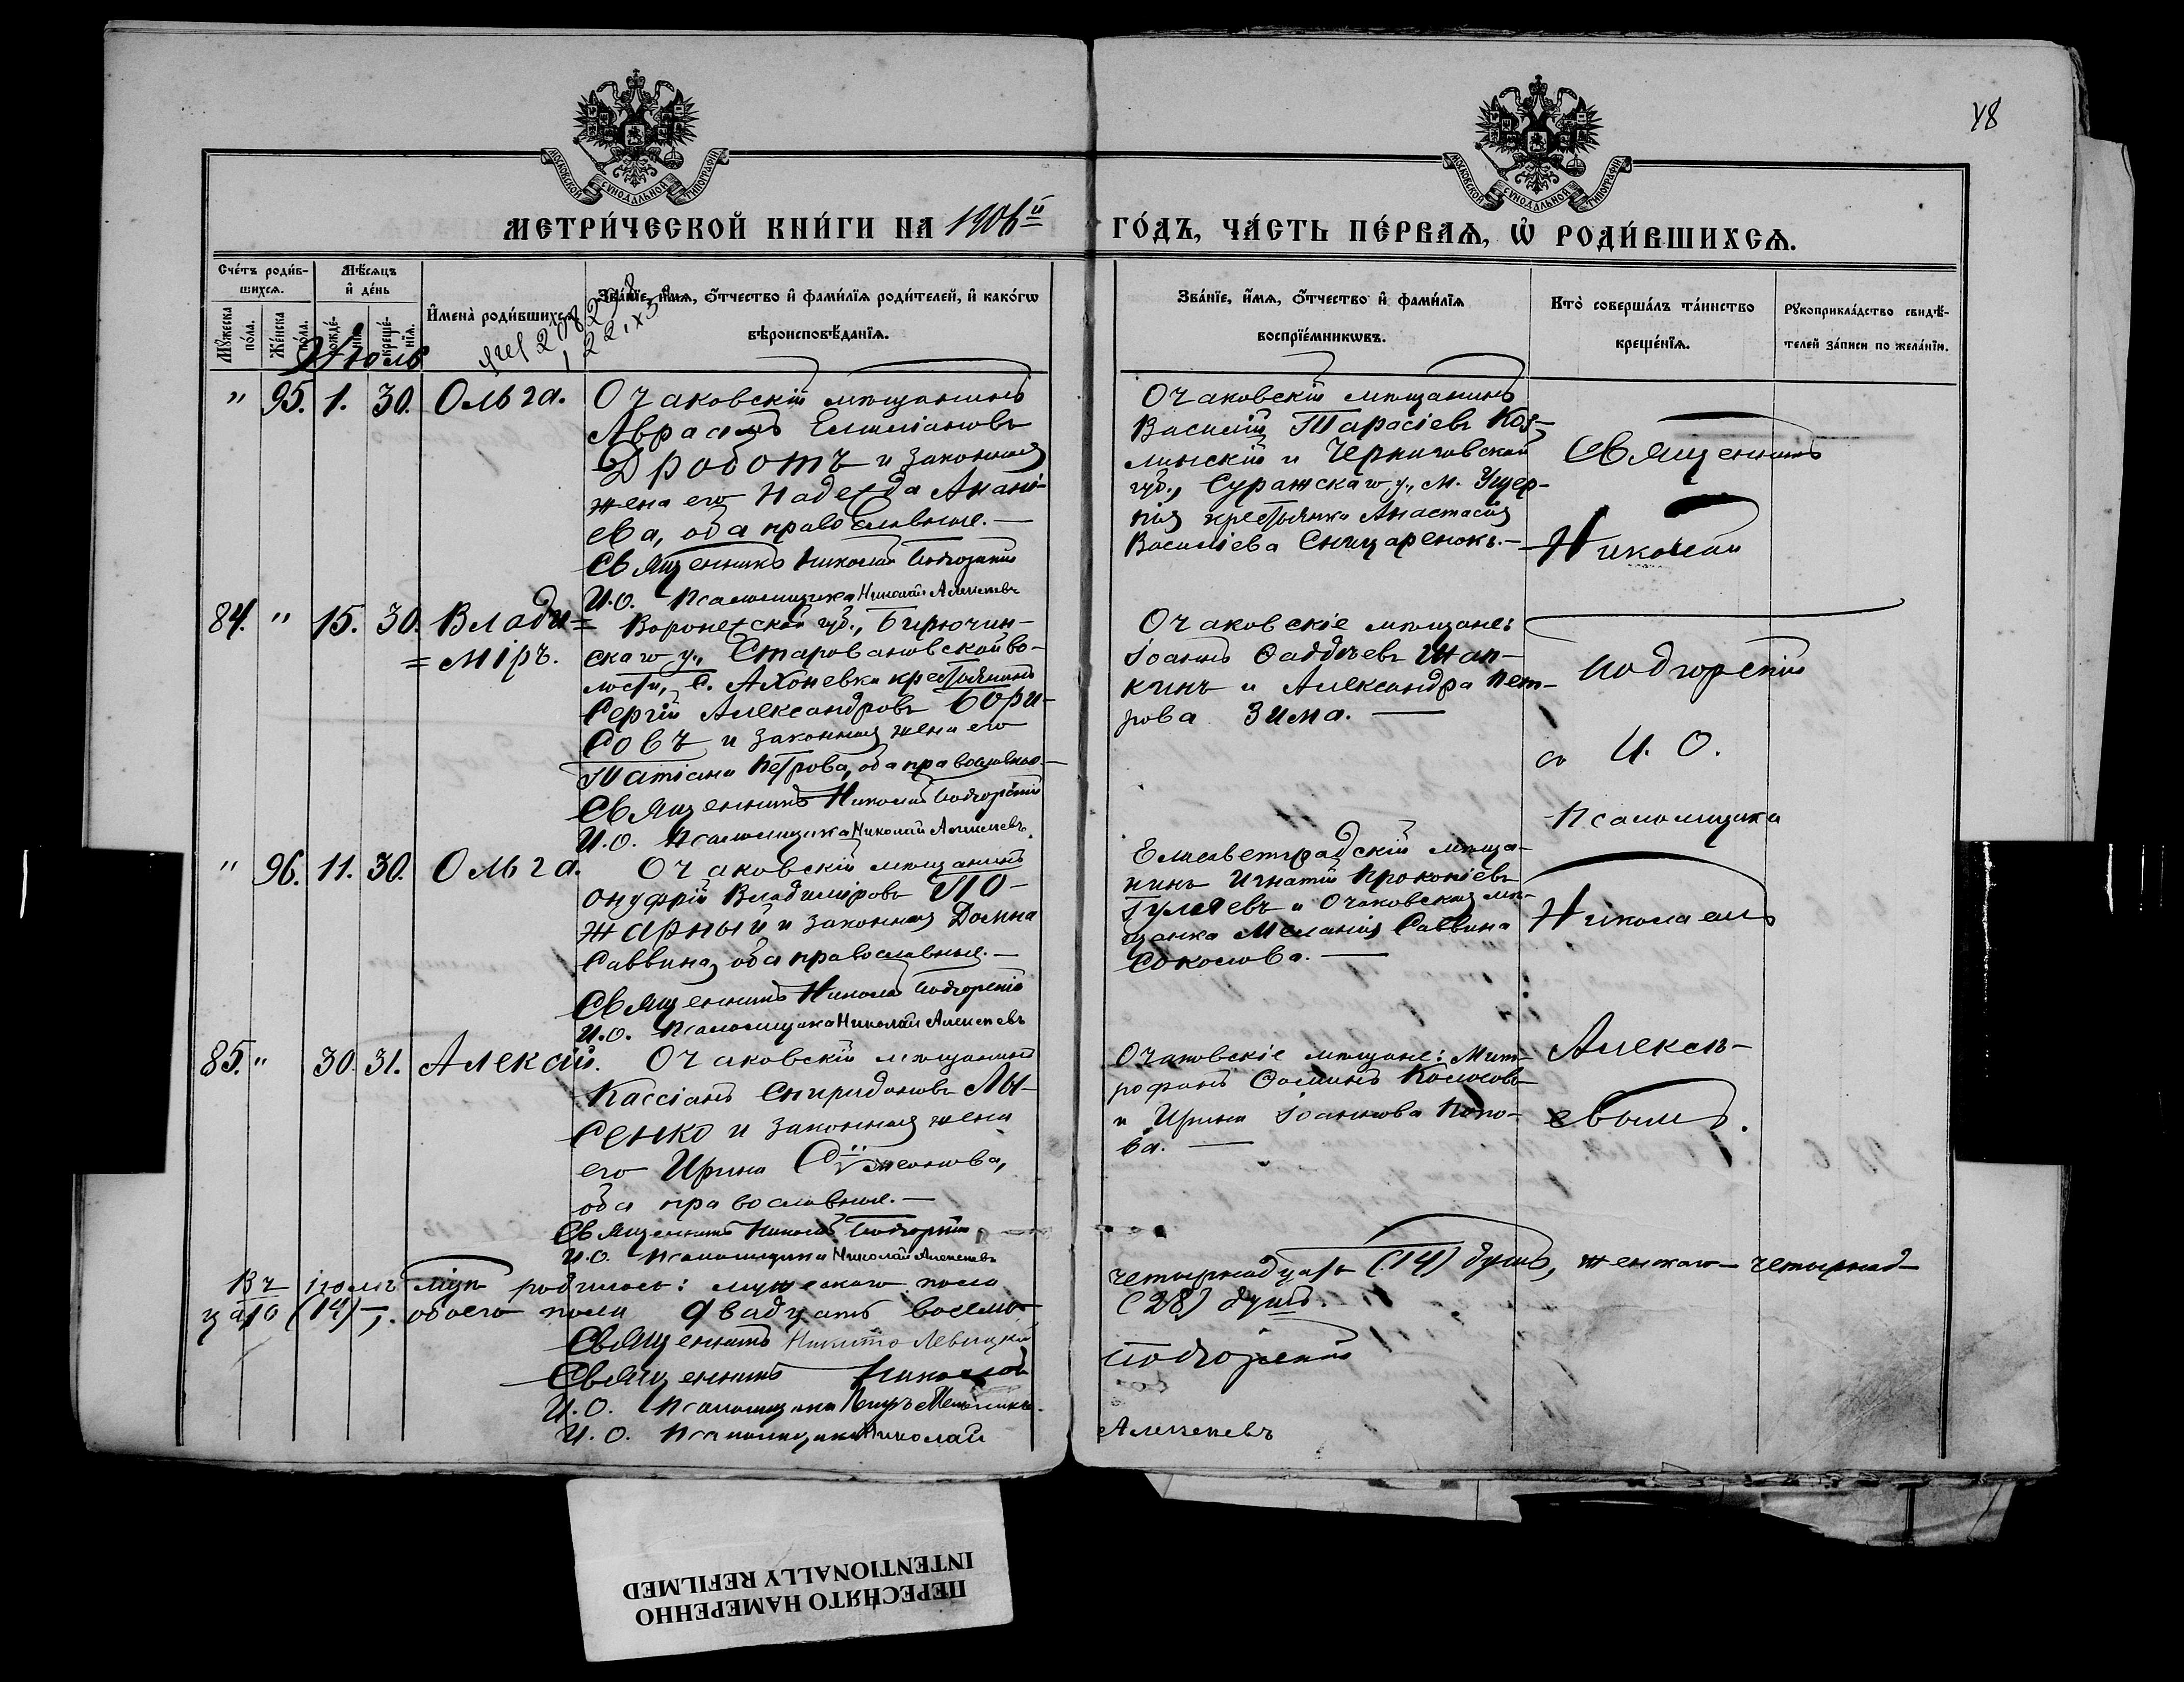 48
МОСКОВСКОЙ СѴНОДАЛЬНОЙ ТИПОГРАФІИ
МОСКОВСКОЙ СѴНОДАЛЬНОЙ ТИПОГРАФІИ
МЕТРИ́ЧЕСКОЙ КНИ́ГИ НА 1906й ГО́ДЪ, ЧА́СТЬ ПЕ́РВАѦ, Ѽ РОДИ́ВШИХСѦ.
Сче́тъ роди́вшихсѧ.
Мѹ́жеска по́ла.
Же́нска по́ла.
Мѣ́сѧцъ и҆ де́нь
рожде́нїѧ.
креще́нїѧ.
И҆мена̀ роди́вшихсѧ.
Зва́нїе, и҆́мѧ, ѻ҆́тчество и҆ фами́лїѧ роди́телей, и҆ како́гѡ
вѣроисповѣ́данїѧ.
Зва́нїе, и҆́мѧ, ѻ҆́тчество и҆ фами́лїѧ
воспрїе́мникѡвъ.
Кто̀ соверша́лъ та́инство
креще́нїѧ.
Рѹкоприкла́дство свидѣ́-
телей за́писи по жела́нїю.
Іюль
" 95. 1. 30. Ольга.
Очаковскій мѣщанинъ
Авраамъ Емиліановъ
Дроботъ и законная
жена его Надежда Анані-
ева, оба православные.—
Священникъ Николай Подгорскій
И.О. Псаломщика Николай Алексѣевъ
Очаковскій мѣщанинъ
Василій Тарасіевъ Коз-
линскій и Черниговской
губ., Суражскаго у., м. Ущер-
пія крестьянка Анастасія
Василіева Сницаренокъ.—
Священникъ
Николай
Подгорскій
съ И. О.
Псаломщика
Николаемъ
Алексѣ-
евымъ.
84. " 15. 30. Влади=
=міръ.
Воронежской губ., Бирючин-
скаго у., Старовановской во-
лости, с. Ахоневки крестьянинъ
Сергій Александровъ Бори-
совъ и законная жена его
Татіана Петрова, оба православные.—
Священникъ Николай Подгорскій
И.О. Псаломщика Николай Алексѣевъ.
Очаковскіе мѣщане:
Іоаннъ Фаддѣевъ Шап-
кинъ и Александра Пет-
рова Зима.—
" 96. 11. 30. Ольга.
Очаковскій мѣщанинъ
Онуфрій Владиміровъ По-
жарный и законная Домна
Саввина, оба православные.—
Священникъ Николай Подгорскій
И.О. Псаломщика Николай Алексѣевъ
Елисаветградскій мѣща-
нинъ Игнатій Прокопіевъ
Гуляевъ и Очаковская мѣ-
щанка Меланія Саввина
Соколова.—
85. " 30. 31. Алексій.
Очаковскій мѣщанинъ
Кассіанъ Спиридоновъ Лы-
сенко и законная жена
его Ирина Сѵмеонова,
оба православные.—
Священникъ Николай Подгорскій
И.О. Псаломщика Николай Алексѣевъ
Очаковскіе мѣщане: Мит-
рофанъ Фоминъ Колосовъ
и Ирина Іоаннова Попо-
ва.—
Въ іюлѣ мцѣ родилось: мужескаго пола четырнадцать (14) душъ, женскаго— четырнад-
цать (14)—, обоего пола двадцать восемь (28) душъ.
Священникъ Никита Левицкій
Священникъ Николай Подгорскій
И.О. Псаломщика
И.О. Псаломщика Николай Алексѣевъ
ПЕРЕСНЯТО НАМЕРЕННО
INTENTIONALLY REFILMED